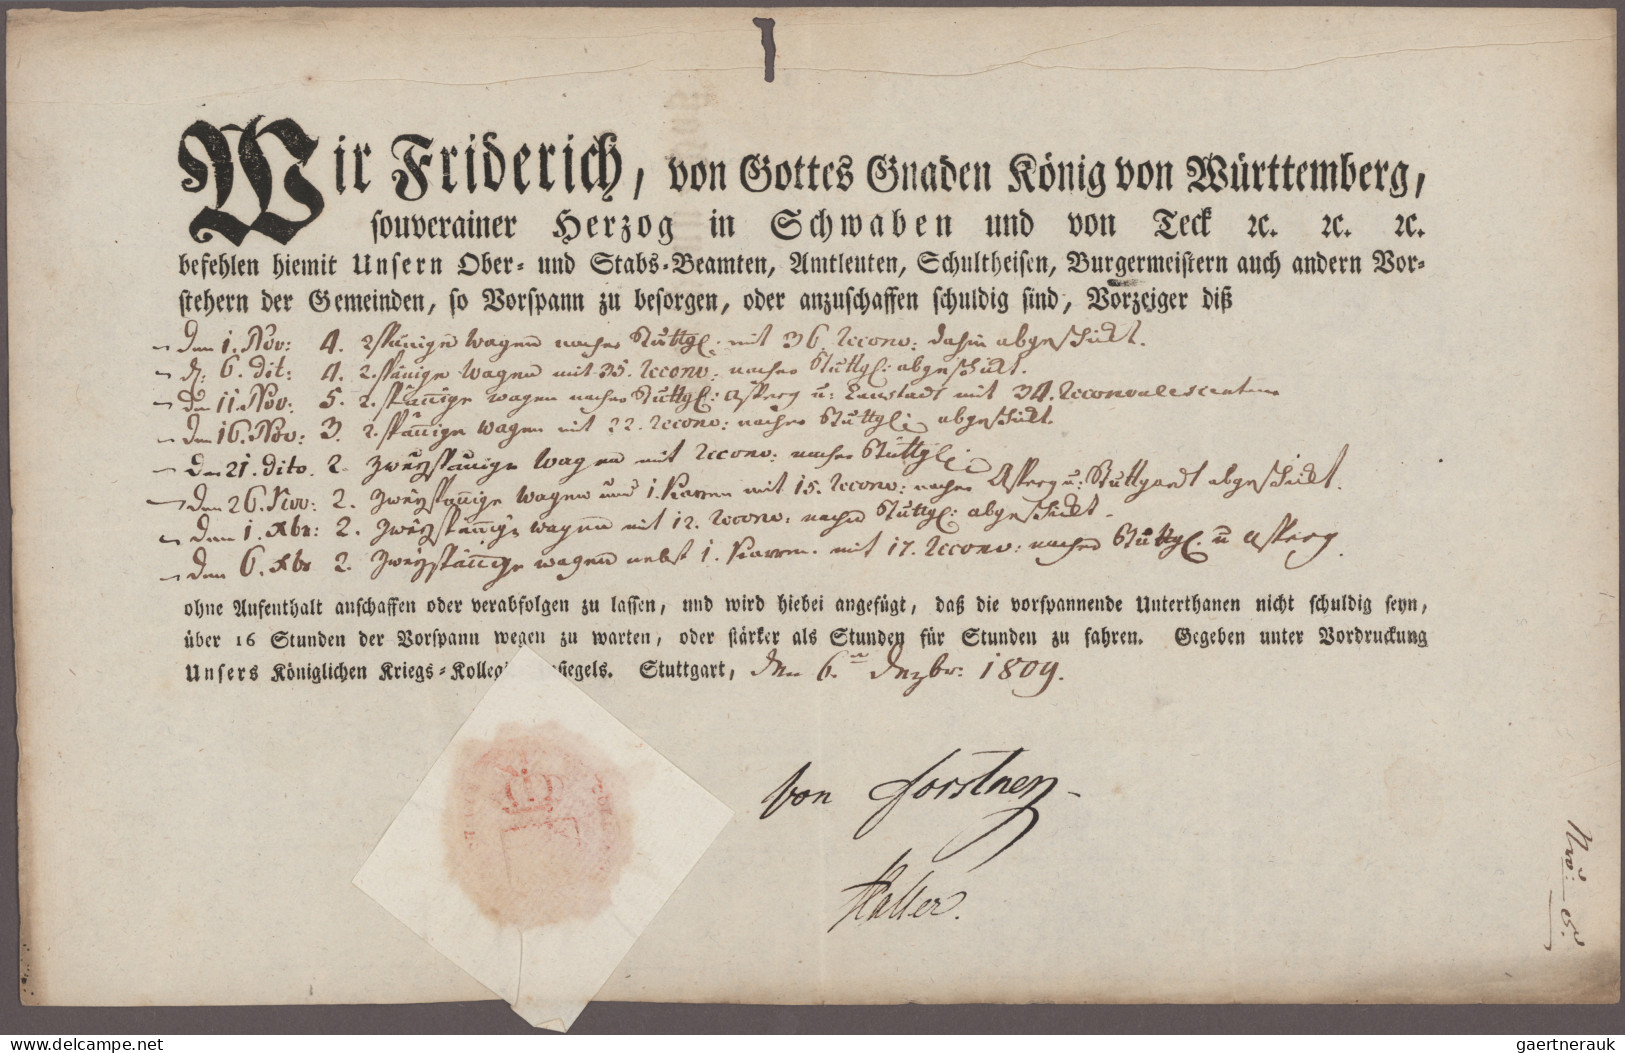 Wir Friderich, von Gottes Gnaden König von Württemberg,
souverainer Herzog in Schwaben und von Teck ꝛc. ꝛc. ꝛc.
befehlen hiemit Unsern Ober- und Stabs-Beamten, Amtleuten, Schultheisen, Burgermeistern auch andern Vor-
stehern der Gemeinden, so Vorspann zu besorgen, oder anzuschaffen schuldig sind, Vorzeiger diß
den 1. Nov: 4. 2spänige Wagen nacher Stuttg: mit 36. Reconv: dahin abgeschikt.
d. 6. dit: 4. 2.spänige Wagen mit 35. Reconv: nacher Stuttg: abgeschikt.
den 11. Nov: 5. 2.spänige Wagen nacher Stuttg: Asperg u: mit 34. Reconvalescenten
den 16. Nov: 3. 2.spänige Wagen mit 22. Reconv: nacher Stuttg: abgeschikt.
den 21. dito. 2. zweyspänige Wagen mit Reconv: nacher Stuttg:
den 26. Nov: 2. zweyspänige Wagen und 1. Karren mit 15. Reconv: nacher Asperg u: Stuttgardt abgeschikt.
den 1. Xbr: 2. zweyspänige Wagen mit 12. Reconv: nacher Stuttg: abgeschikt.
den 6. Xbr 2. zweyspänige Wagen nebst 1. Karren. mit 17. Reconv: nacher Stuttg. u Asperg
ohne Aufenthalt anschaffen oder verabfolgen zu lassen, und wird hiebei angefügt, daß die vorspannende Unterthanen nicht schuldig seyn,
über 16 Stunden der Vorspann wegen zu warten, oder stärker als Stunden für Stunden zu fahren. Gegeben unter Vordruckung
Unsers Königlichen Kriegs-Kolleg siegels. Stuttgart, den 6.ten Dezbr: 1809.
von Forstner
Haller.
Nro: 6.
www.delcampe.net
gaertnerauk